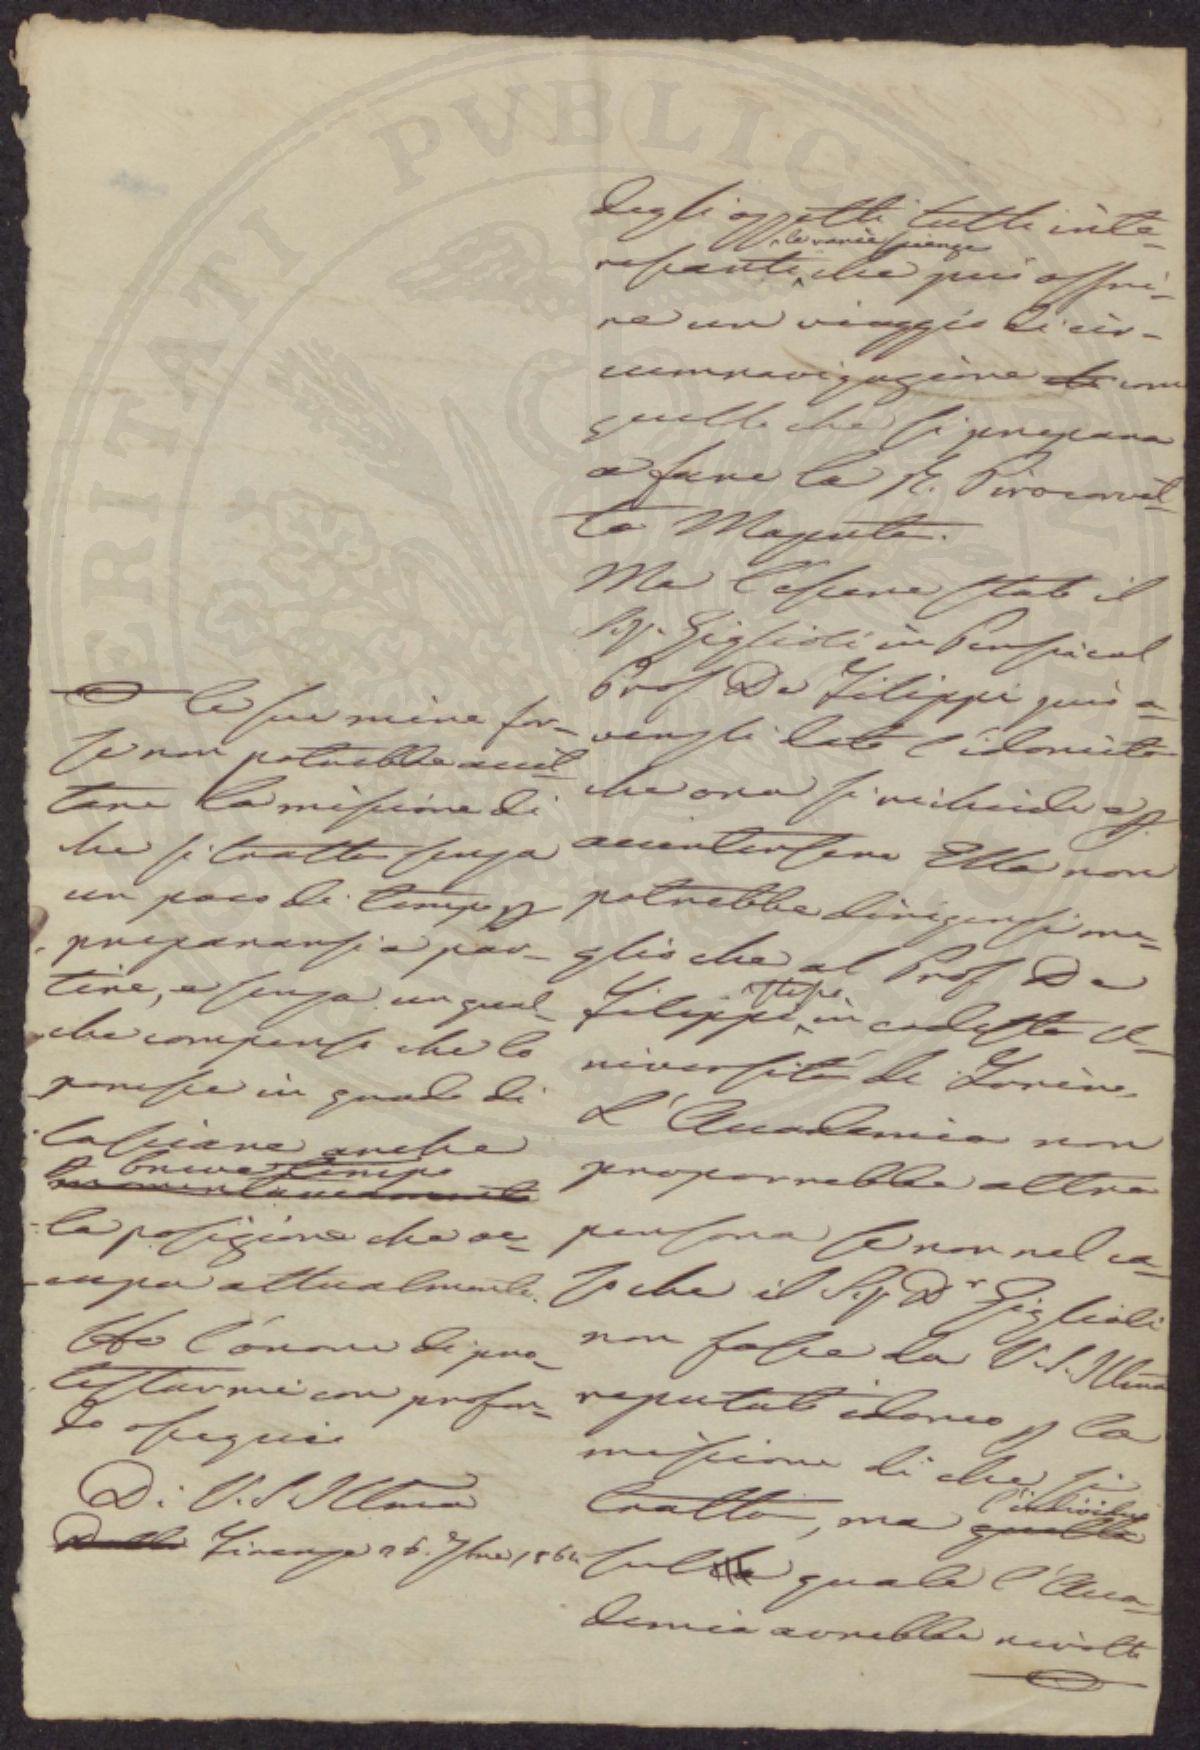 degli oggetti tutti inte-
ressanti le varie scienze che può offri-
re un viaggio di cir-
cumnavigazione come
quello che si prepara
a fare la R. Pirocorvet-
ta Magenta.
Ma l'essere stato il
Sig. Giglioli in Persia col
Prof. De Filippi può a-
vergli dato l'idoneità
che ora si richiede e p
accertarsene Ella non
potrebbe dirigersi me-
glio che al Prof. De
Filippi stesso in codesta U-
niversità di Torino.
L'Accademia non
proporrebbe altra
persona se non nel ca-
so che il Sig. Dr. Giglioli
non fosse da V. S. Illma
reputato idoneo p la
missione di che si
tratta, ma quello l'individuo
sul quale l'Acca-
demia avrebbe rivolte
le sue mire for-
se non potrebbe accet-
tare la missione di
che si tratta senza
un poco di tempo p
prepararsi a par-
tire, e senza un qual-
che compenso che lo
ponesse in grado di
lasciare anche
p breve tempo
momentaneamente
la posizione che oc-
cupa attualmente.
Ho l'onore di pro-
testarmi con profon-
do ossequio
Di V. S. Illma
Dalla Firenze 26. 7bre 1865
VERITATI PVBLIC